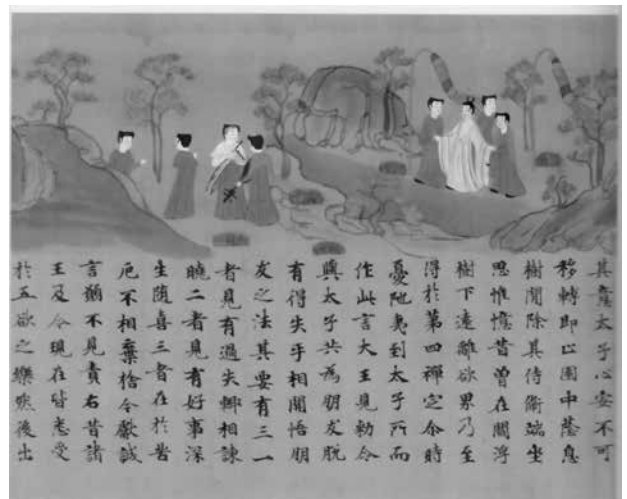 其意太子心安不可
移轉即止園中蔭息
樹閒除其侍衛端坐
思惟憶昔曾在閻浮
樹下遠離欲界乃至
得於第四禪定尒時
憂陁夷到太子所而
作此言大王見勑令
與太子共為朋友脫
有得失乎相開悟朋
友之法其要有三一
者見有過失輙相諫
曉二者見有好事深
生随喜三者在於苦
厄不相棄捨今獻誠
言猶不見責古昔諸
王及今現在皆悉受
於五欲之樂然後出